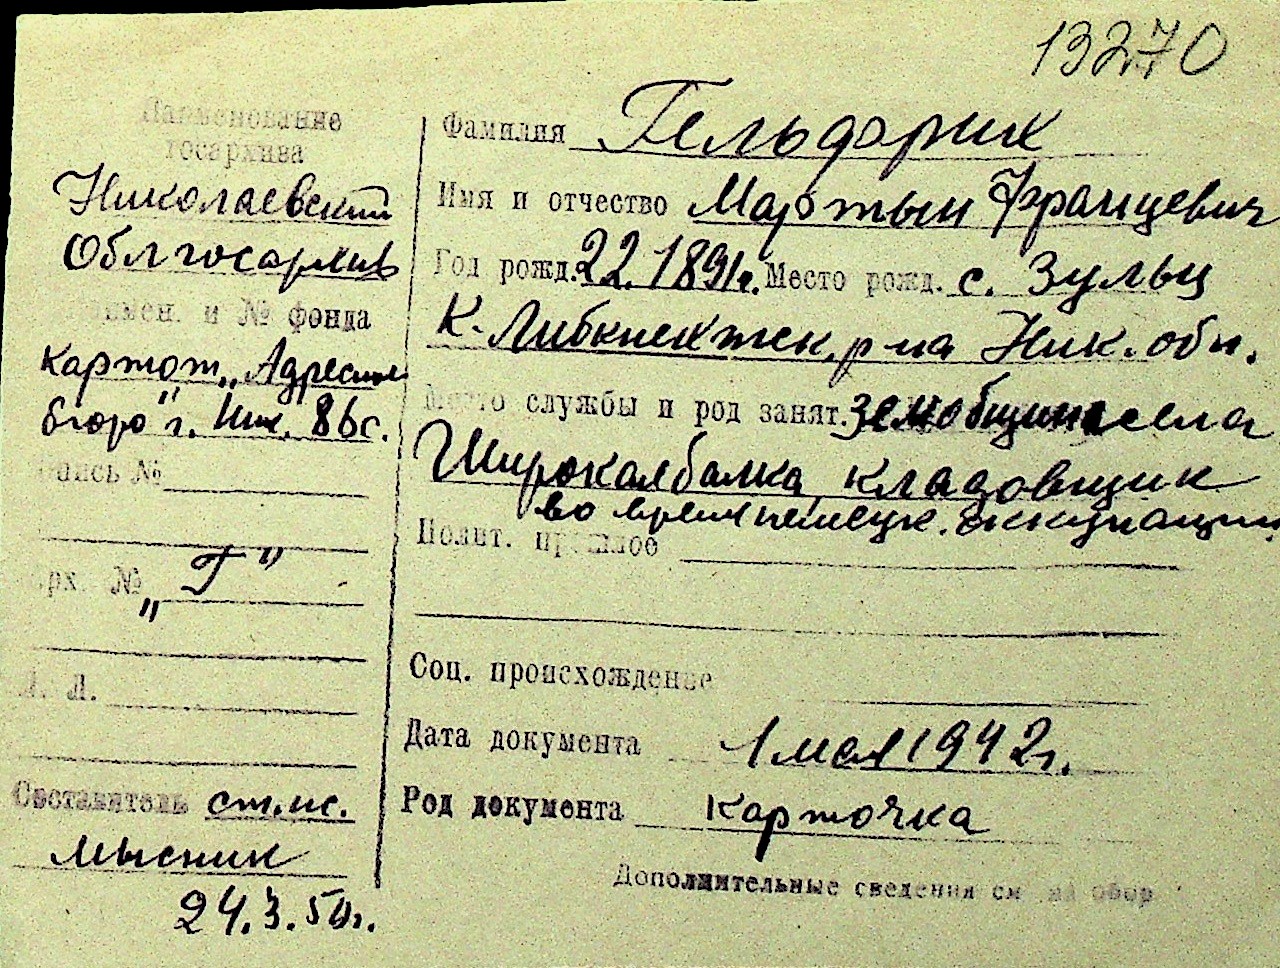 13270
Наименование
госархива
Николаевский
Облгосархив
и № фонда
картот. „Адресное
бюро" г. Ник. 86с.
Опись №
Арх. № „Г"
Л. Л.
Составитель ст. ис.
Мысник
24.3.50г.
Фамилия Гельфорих
Имя и отчество Мартын Францевич
Год рожд. 22.1891г. Место рожд. с. Зульц
К. Либкнехтск. р-на Ник. обл.
Место службы и род занят. Земобщина села
Широкая балка, кладовщик
во время немецк. оккупации
Полит. прошлое
Соц. происхождение
Дата документа 1 мая 1942г.
Род документа Карточка
Дополнительные сведения см на обор